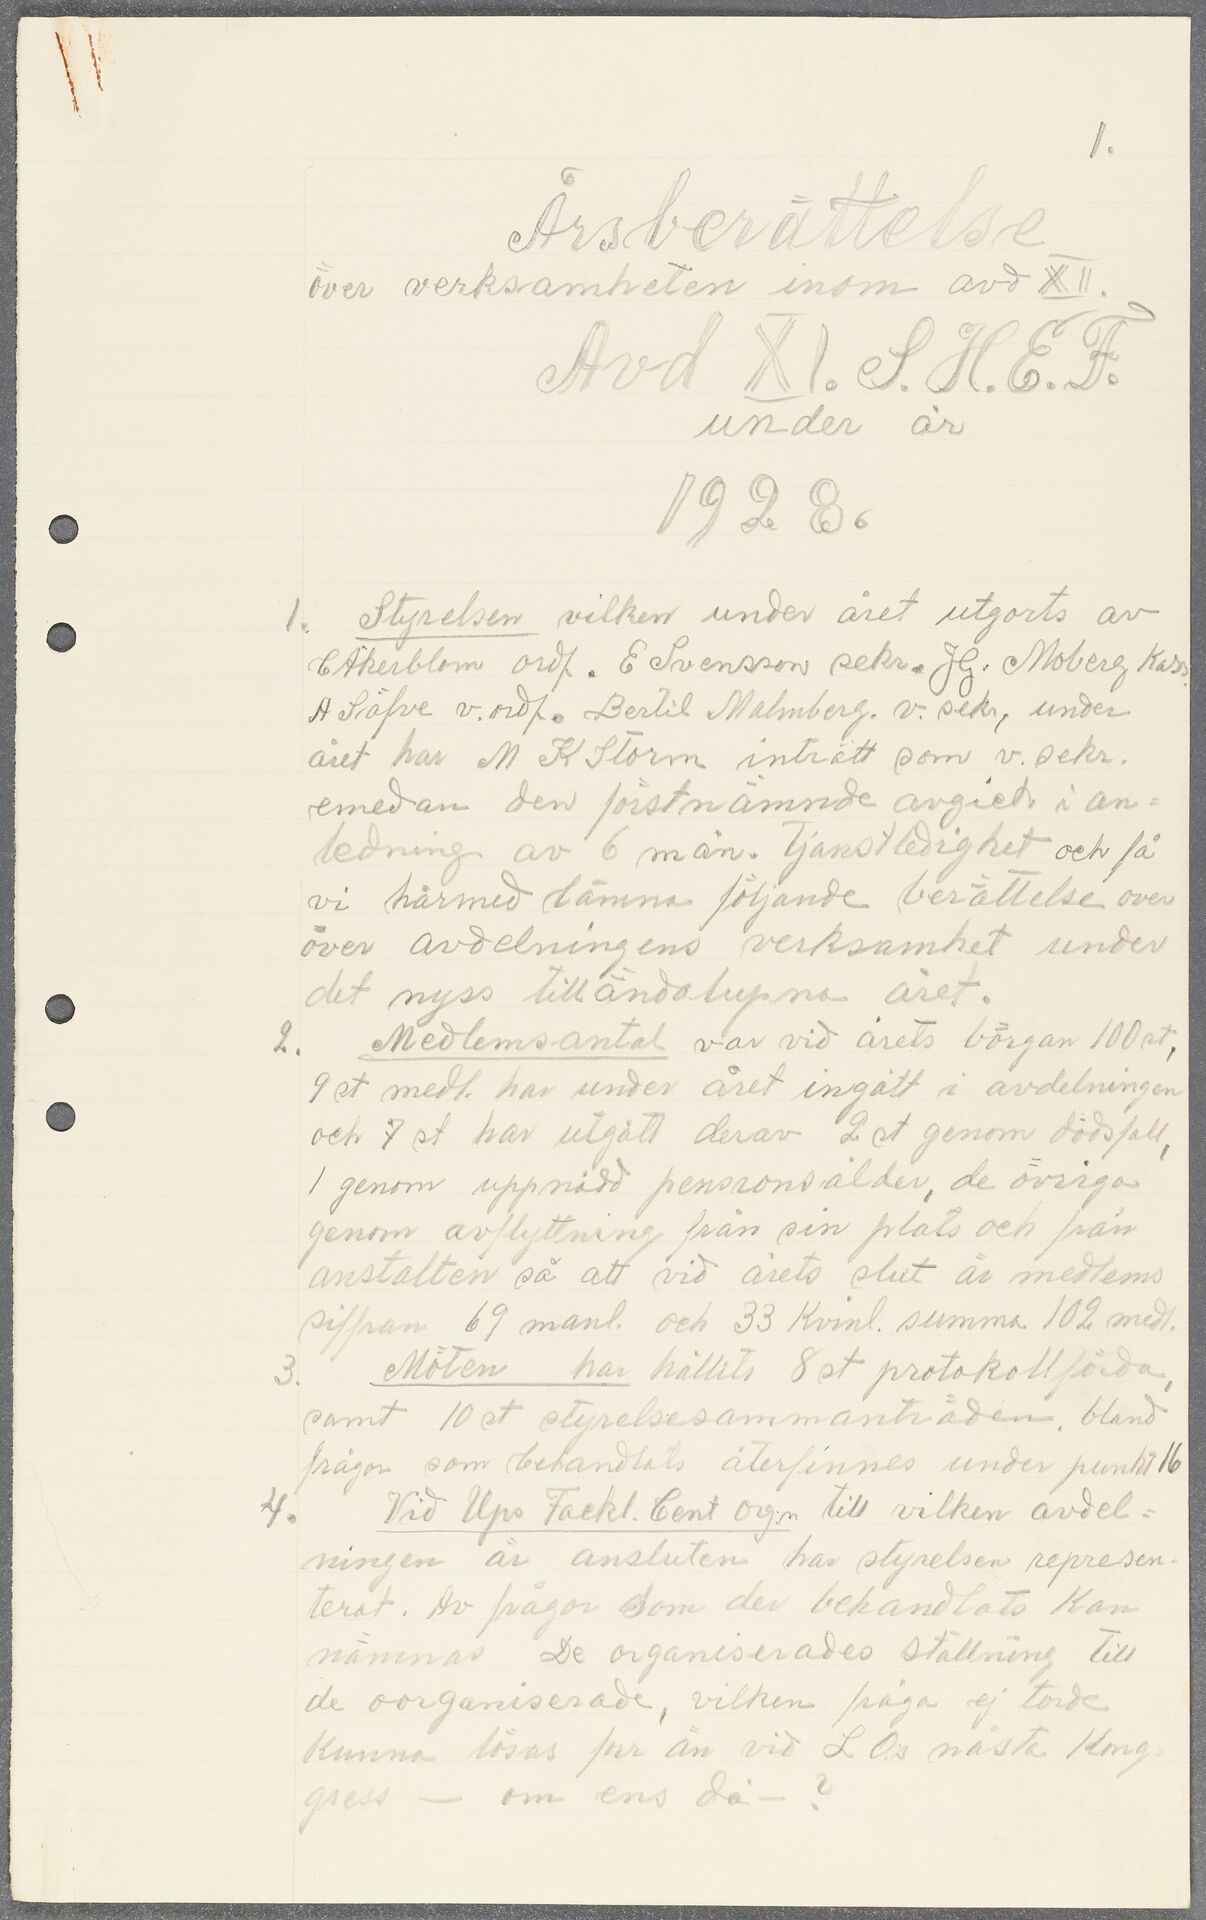 1.
Årsberättelse
över verksamheten inom avd XII.
Avd XI. S. H. E. F.
under år
1928.
1. Styrelsen vilken under året utgorts av
E Åkerblom ordf. E Svensson sekr. Hj. Moberg Kass.
A Säfve v. ordf. Bertil Malmberg. v. sekr, under
året har M K Storm inträtt som v. sekr.
emedan den förstnämnde avgick i an=
ledning av 6 mån. Tjanstledighet och få
vi härmed lämna följande berättelse over
över avdelningens verksamhet under
det nyss tilländalupna året.
2. Medlemsantal var vid årets börgan 100 st,
9 st medl. har under året ingått i avdelningen
och 7 st har utgått derav 2 st genom dödsfall,
1 genom uppnådd pensionsålder, de övriga
genom avflyttning från sin plats och från
anstalten så att vid årets slut är medlems
siffran 69 manl. och 33 Kvinl. summa 102 medl.
3. Möten har hållits 8 st protokollförda,
samt 10 st styrelsesammanträden. bland
frågor som behandlats återfinnes under punkt 16
4. Vid Ups Fackl. Cent org:n till vilken avdel=
ningen är ansluten har styrelsen represen=
terat. Av frågor som der behandlats Kan
nämnas De organiserades ställning till
de oorganiserade, vilken fråga ej torde
Kunna lösas förr än vid L O:s nästa Kong=
gress — om ens då — ?